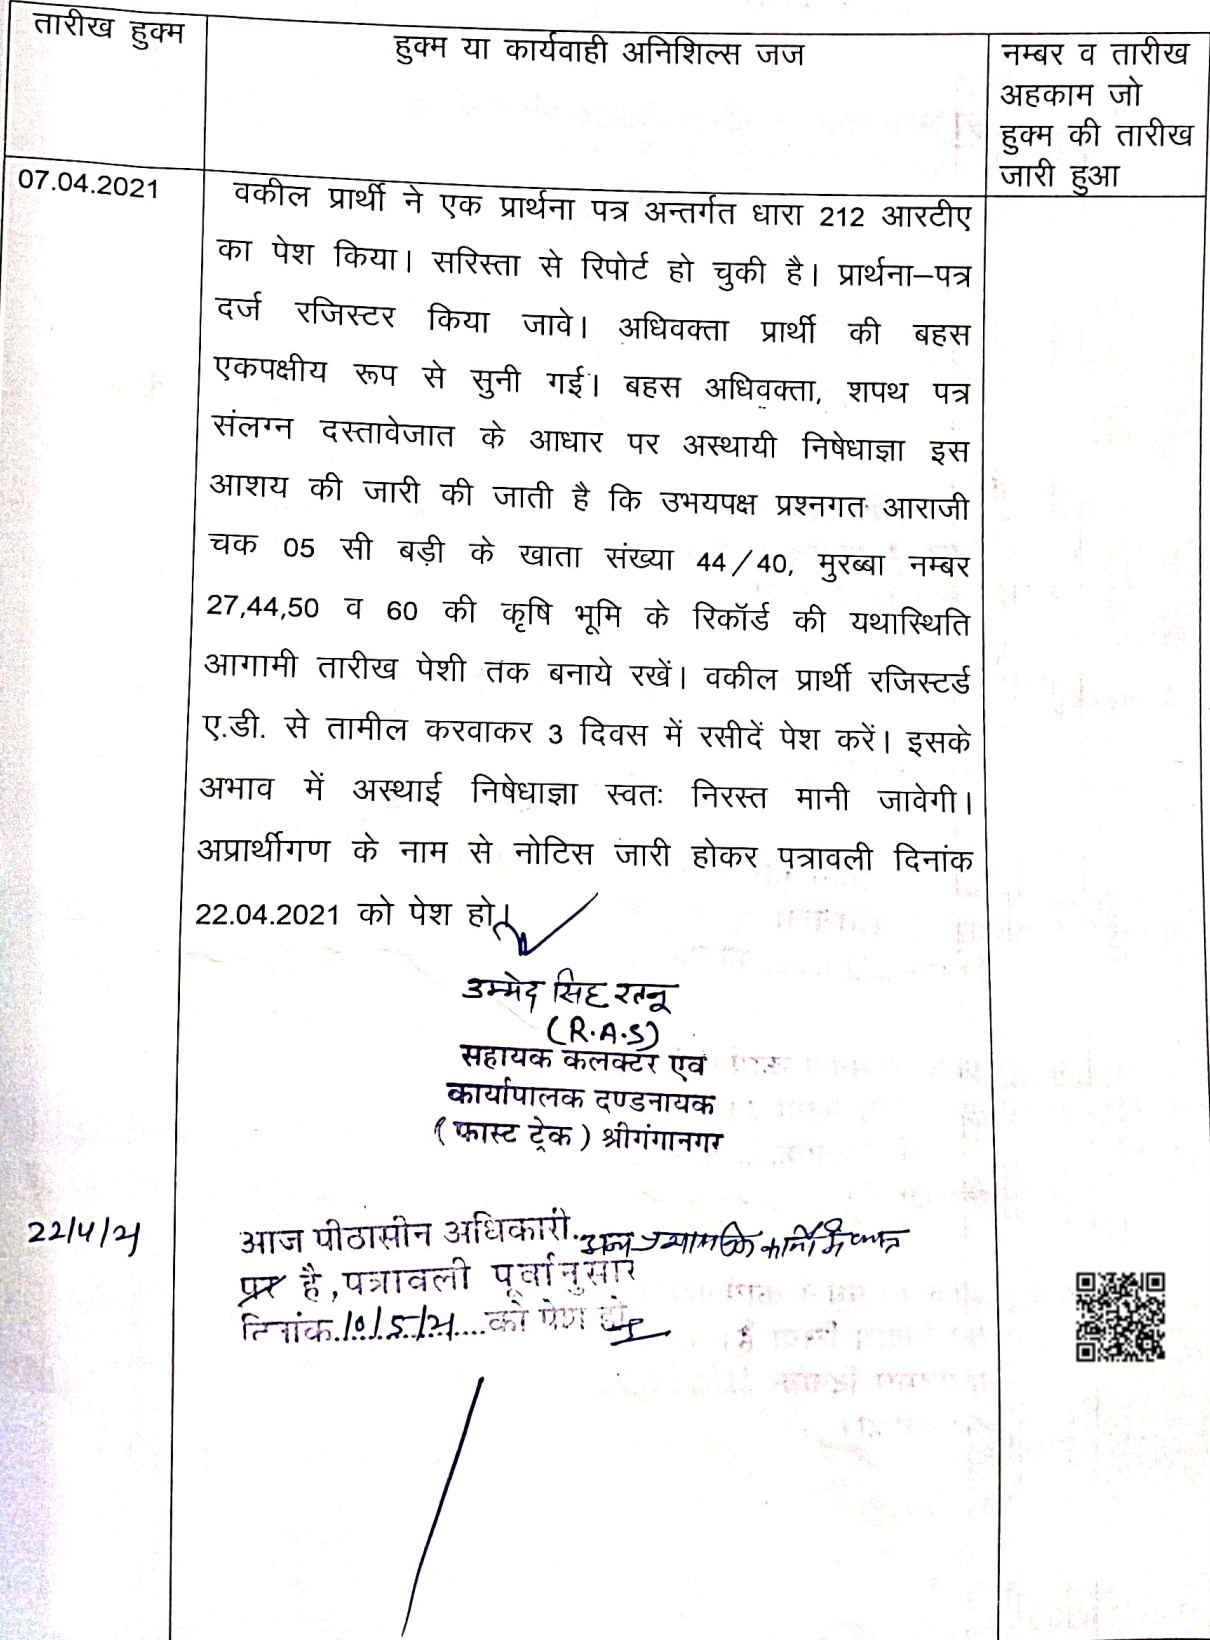 तारीख हुक्म
हुक्म या कार्यवाही अनिशिल्स जज
नम्बर व तारीख
अहकाम जो
हुक्म की तारीख
जारी हुआ
07.04.2021
वकील प्रार्थी ने एक प्रार्थना पत्र अन्तर्गत धारा 212 आरटीए
का पेश किया। सरिस्ता से रिपोर्ट हो चुकी है। प्रार्थना–पत्र
दर्ज रजिस्टर किया जावे। अधिवक्ता प्रार्थी की बहस
एकपक्षीय रूप से सुनी गई। बहस अधिवक्ता, शपथ पत्र
संलग्न दस्तावेजात के आधार पर अस्थायी निषेधाज्ञा इस
आशय की जारी की जाती है कि उभयपक्ष प्रश्नगत आराजी
चक 05 सी बड़ी के खाता संख्या 44/40, मुरब्बा नम्बर
27,44,50 व 60 की कृषि भूमि के रिकॉर्ड की यथास्थिति
आगामी तारीख पेशी तक बनाये रखें। वकील प्रार्थी रजिस्टर्ड
ए.डी. से तामील करवाकर 3 दिवस में रसीदें पेश करें। इसके
अभाव में अस्थाई निषेधाज्ञा स्वतः निरस्त मानी जावेगी।
अप्रार्थीगण के नाम से नोटिस जारी होकर पत्रावली दिनांक
22.04.2021 को पेश हो।
उम्मेद सिंह रतनू
(R.A.S)
सहायक कलक्टर एवं
कार्यापालक दण्डनायक
(फास्ट ट्रेक) श्रीगंगानगर
22/4/21
आज पीठासीन अधिकारी अन्य
पर है, पत्रावली पूर्वानुसार
दिनांक 10/5/21 को पेश हो